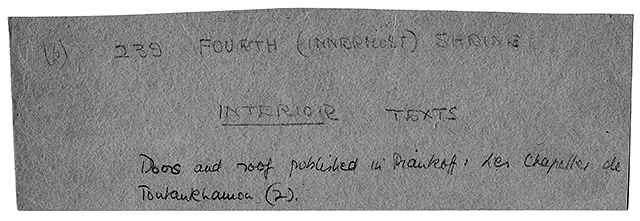 239 FOURTH (INNERMOST) SHRINE
INTERIOR TEXTS
Doors and roof published in Piankoff: Les Chapelles de
Toutankhamon (2).